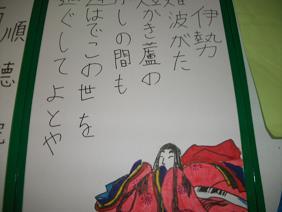 伊勢
波がた
かき蘆の
しの間も
はでこの世を
ぐしてよとや
順徳院